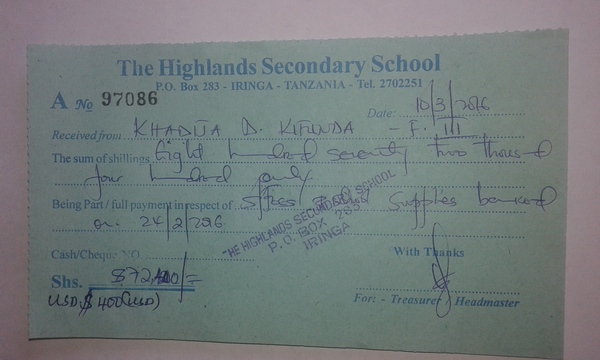 The Highlands Secondary School
P.O. Box 283 - IRINGA - TANZANIA - Tel. 2702251
A No 97086
Date: 10/3/2016
Received from KHADIJA D. KIFUNDA - F. III
The sum of shillings Eight hundred seventy two thousand
four hundred only
Being Part / full payment in respect of fees and supplies banked
on 24/2/2016
THE HIGHLANDS SECONDARY SCHOOL
P.O. BOX 283
IRINGA
Cash/Cheque NO.
With Thanks
Shs. 872,400/=
USD $ 400 (USD)
For: - Treasurer / Headmaster